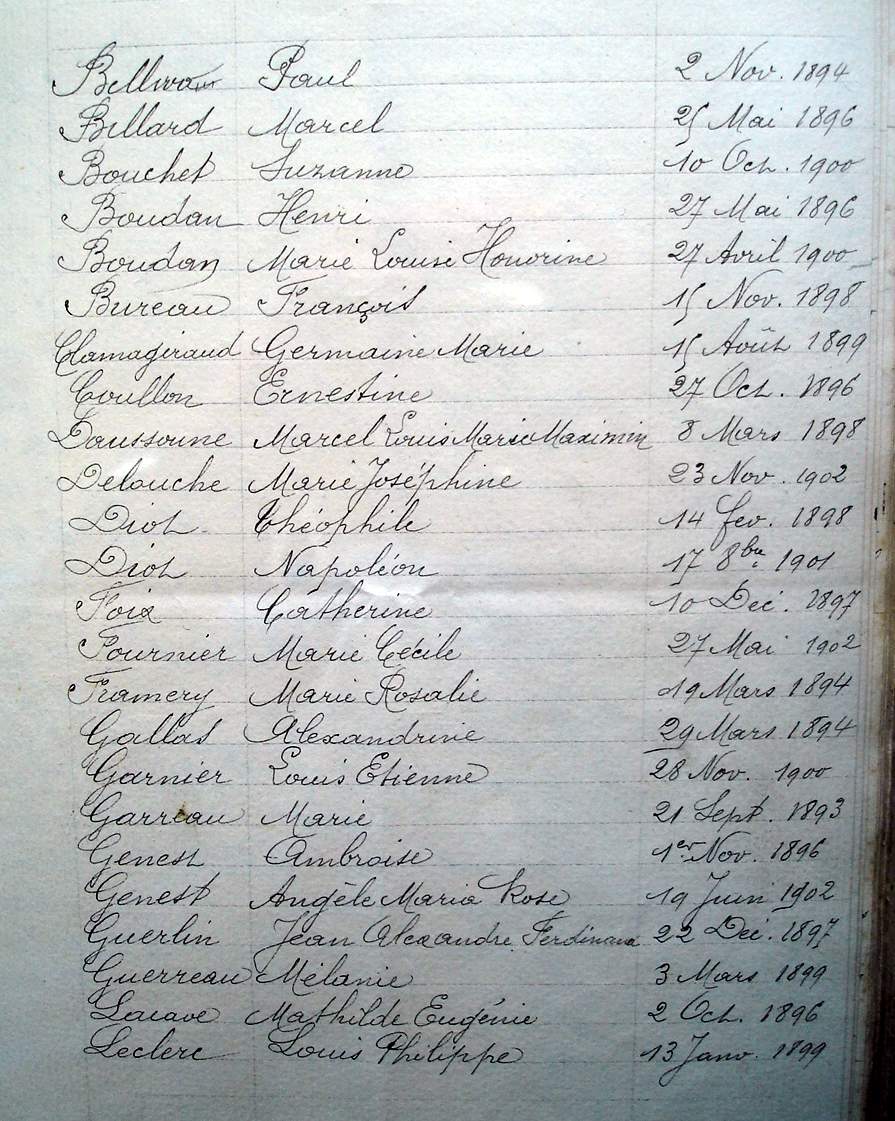 Paul 2 Nov. 1894
Billard Marcel 25 Mai 1896
Bouchet Suzanne 10 Oct. 1900
Boudan Henri 27 Mai 1896
Boudan Marie Louise Honorine 27 Avril 1900
Bureau François 15 Nov. 1898
Clamagiraud Germaine Marie 15 Août 1899
Coullon Ernestine 27 Oct. 1896
Daussonne Marcel Louis Marie Maximin 8 Mars 1898
Delouche Marie Joséphine 23 Nov. 1902
Diot Théophile 14 fev. 1898
Diot Napoléon 17 8bre. 1901
Foix Catherine 10 Dec. 1897
Fournier Marie Cécile 27 Mai 1902
Framery Marie Rosalie 19 Mars 1894
Gallas Alexandrine 29 Mars 1894
Garnier Louis Etienne 28 Nov. 1900
Garreau Marie 21 Sept. 1893
Genest Ambroise 1er. Nov. 1896
Genest Angèle Maria Rose 19 Juin 1902
Guerlin Jean Alexandre Ferdinand 22 Dec. 1897
Guerreau Mélanie 3 Mars 1899
Lacave Mathilde Eugénie 2 Oct. 1896
Leclerc Louis Philippe 13 Janv. 1899